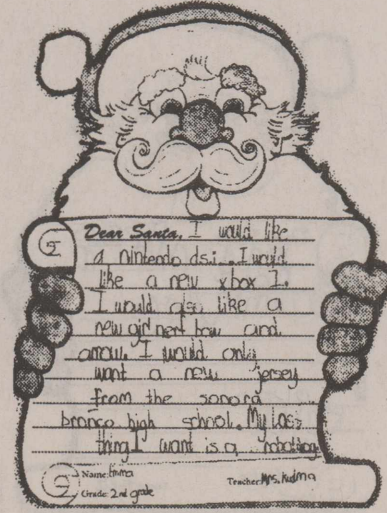 Dear Santa, I would like
a nintendo dsi. I would
like a new xbox 1.
I would also like a
new girl nerf bow and
arrow. I would only
want a new jersey
from the sonora
bronco high school. My Las
thing I want is a robotdog
Name: Emma
Teacher: Mrs. Kuima
Grade: 2nd grade